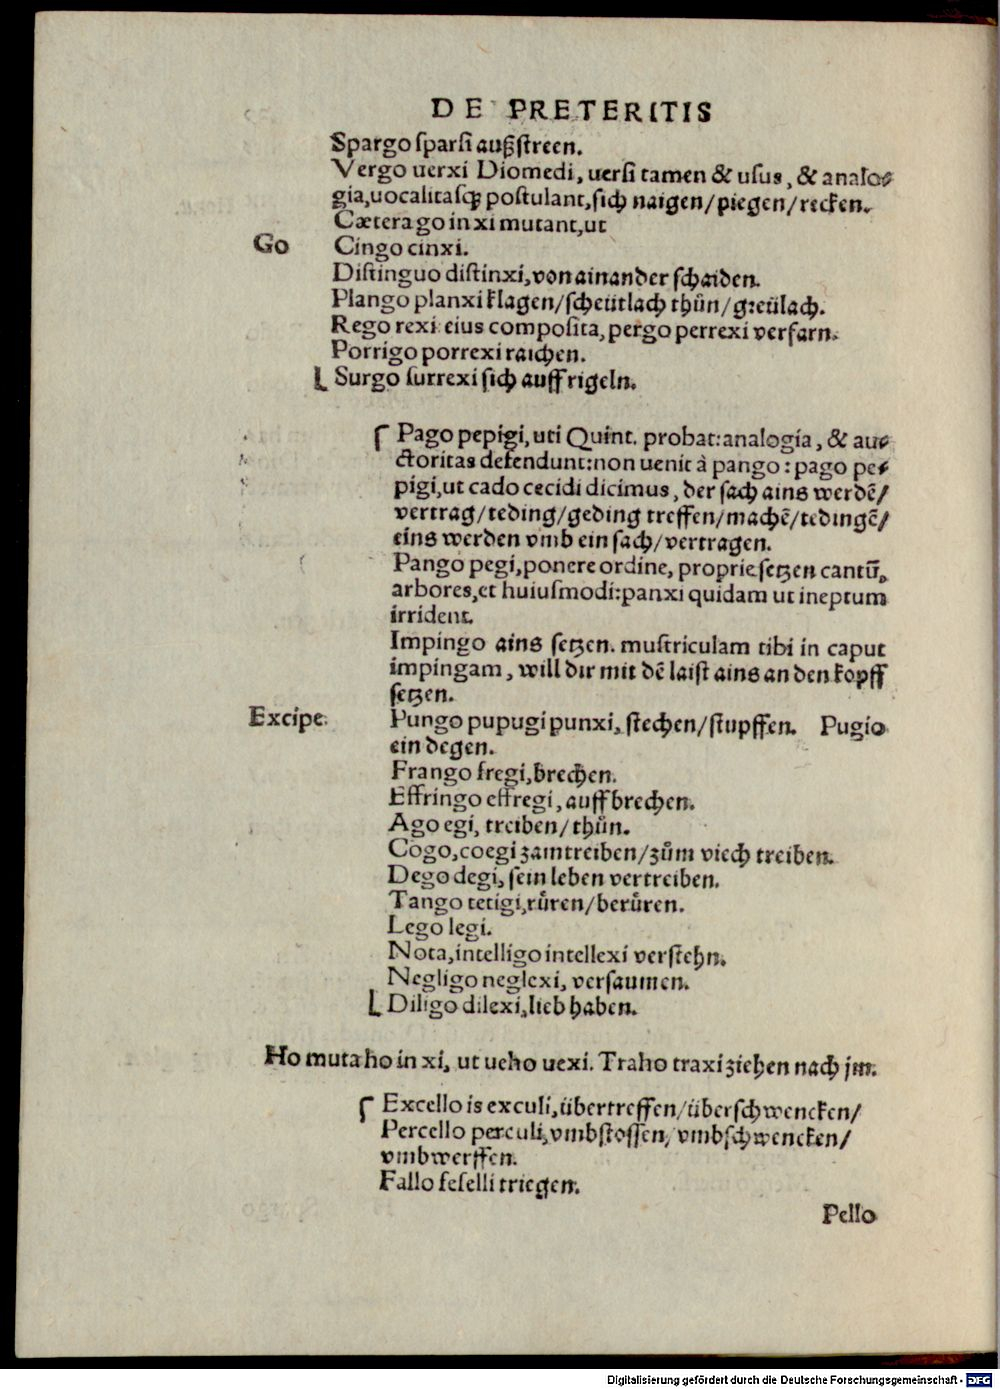 DE PRETERITIS
Spargo sparsi außstreen.
Vergo uerxi Diomedi, uersi tamen & usus, & analo⸗
gia, uocalitasq̃ postulant, sich naigen/piegen/recken.
Cætera go in xi mutant, ut
Go Cingo cinxi.
Distinguo distinxi, von ainander schaiden.
Plango planxi klagen/scheütlach thůn/greülach.
Rego rexi: eius composita, pergo perrexi verfarn.
Porrigo porrexi raichen.
Surgo surrexi sich auff rigeln.
Pago pepigi, uti Quint. probat: analogía, & au⸗
ctoritas defendunt: non uenit à pango: pago pe⸗
pigi, ut cado cecidi dicimus, der sach ains werdē/
vertrag/teding/geding treffen/machē/tedingē/
eins werden vmb ein sach/vertragen.
Pango pegi, ponere ordine, proprie setzen cantū,
arbores, et huiusmodi: panxi quidam ut ineptum
irrident.
Impingo ains setzen. mustriculam tibi in caput
impingam, will dir mit dē laist ains an den kopff
setzen.
Excipe. Pungo pupugi punxi, stechen/stupffen. Pugio
ein degen.
Frango fregi, brechen.
Effringo effregi, auffbrechen.
Ago egi, treiben/thůn.
Cogo, coegi zamtreiben/zům viech treiben.
Dego degi, sein leben vertreiben.
Tango tetigi, růren/berůren.
Lego legi.
Nota, intelligo intellexi verstehn.
Negligo neglexi, versaumen.
Diligo dilexi, lieb haben.
Ho muta ho in xi, ut ueho uexi. Traho traxi ziehen nach jm.
Excello is exculi, übertreffen/überschwencken/
Percello perculi, vmbstossen/vmbschwencken/
vmbwerffen.
Fallo fefelli triegen.
Pello
Digitalisierung gefördert durch die Deutsche Forschungsgemeinschaft - DFG